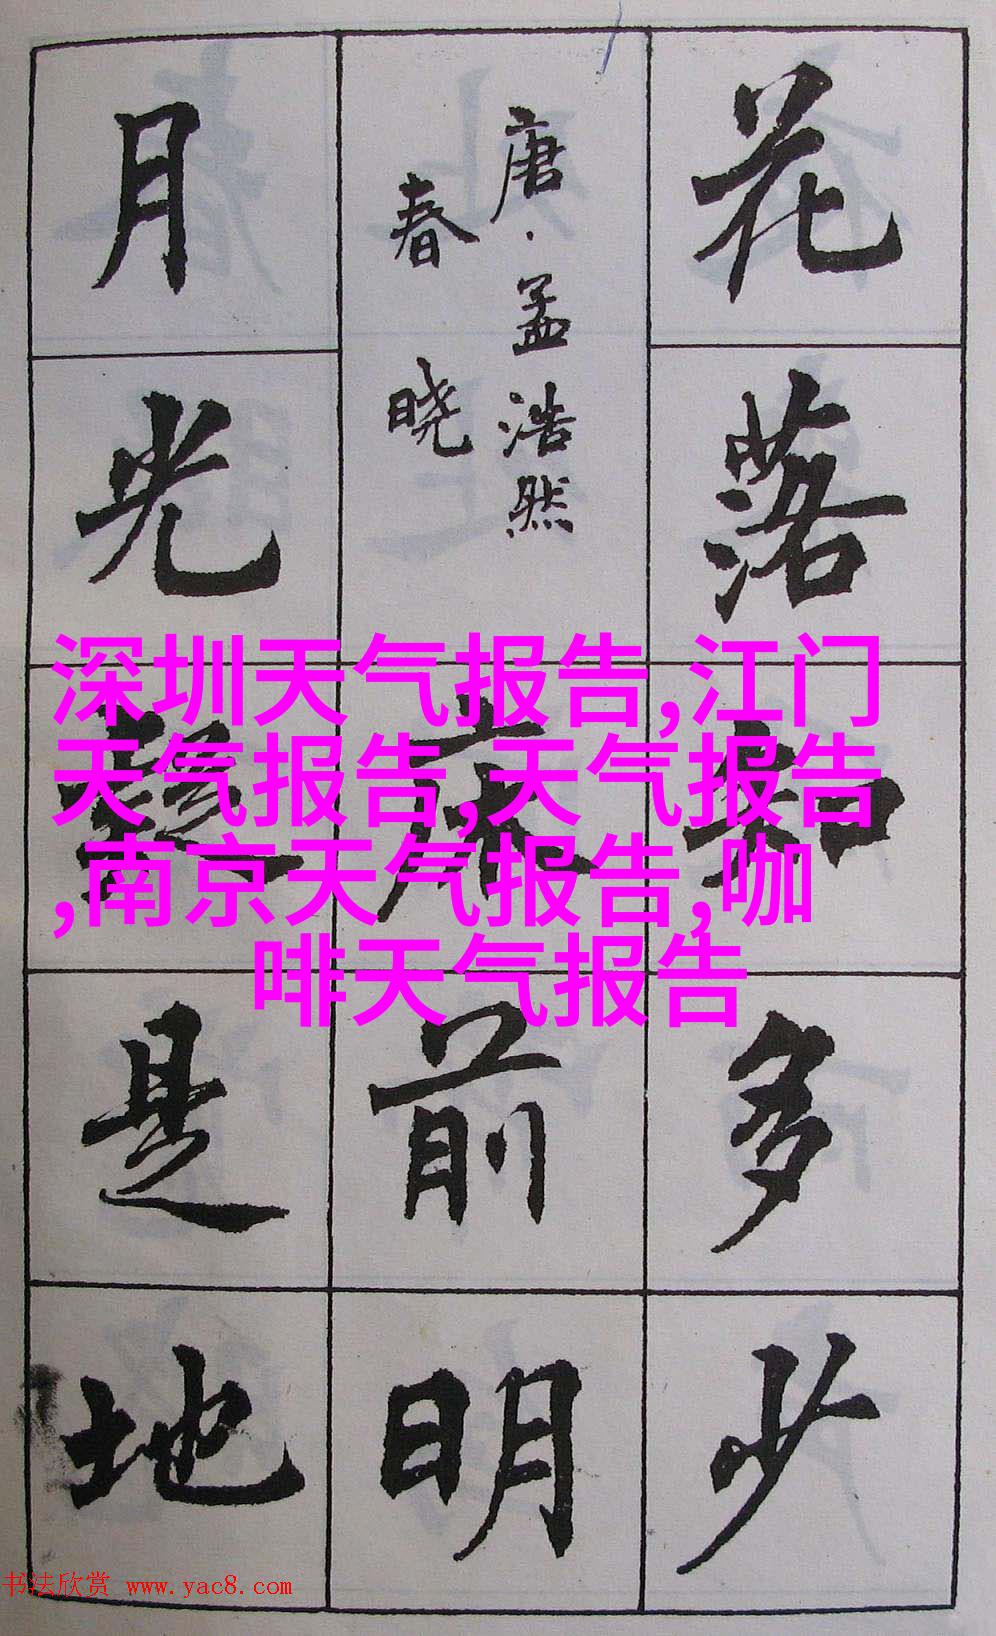 花落知多少
唐·孟浩然
春晓
床前明
月光疑是地
深圳天气报告,江门
天气报告,天气报告
,南京天气报告,咖
啡天气报告
书法欣赏 www.yac8.com